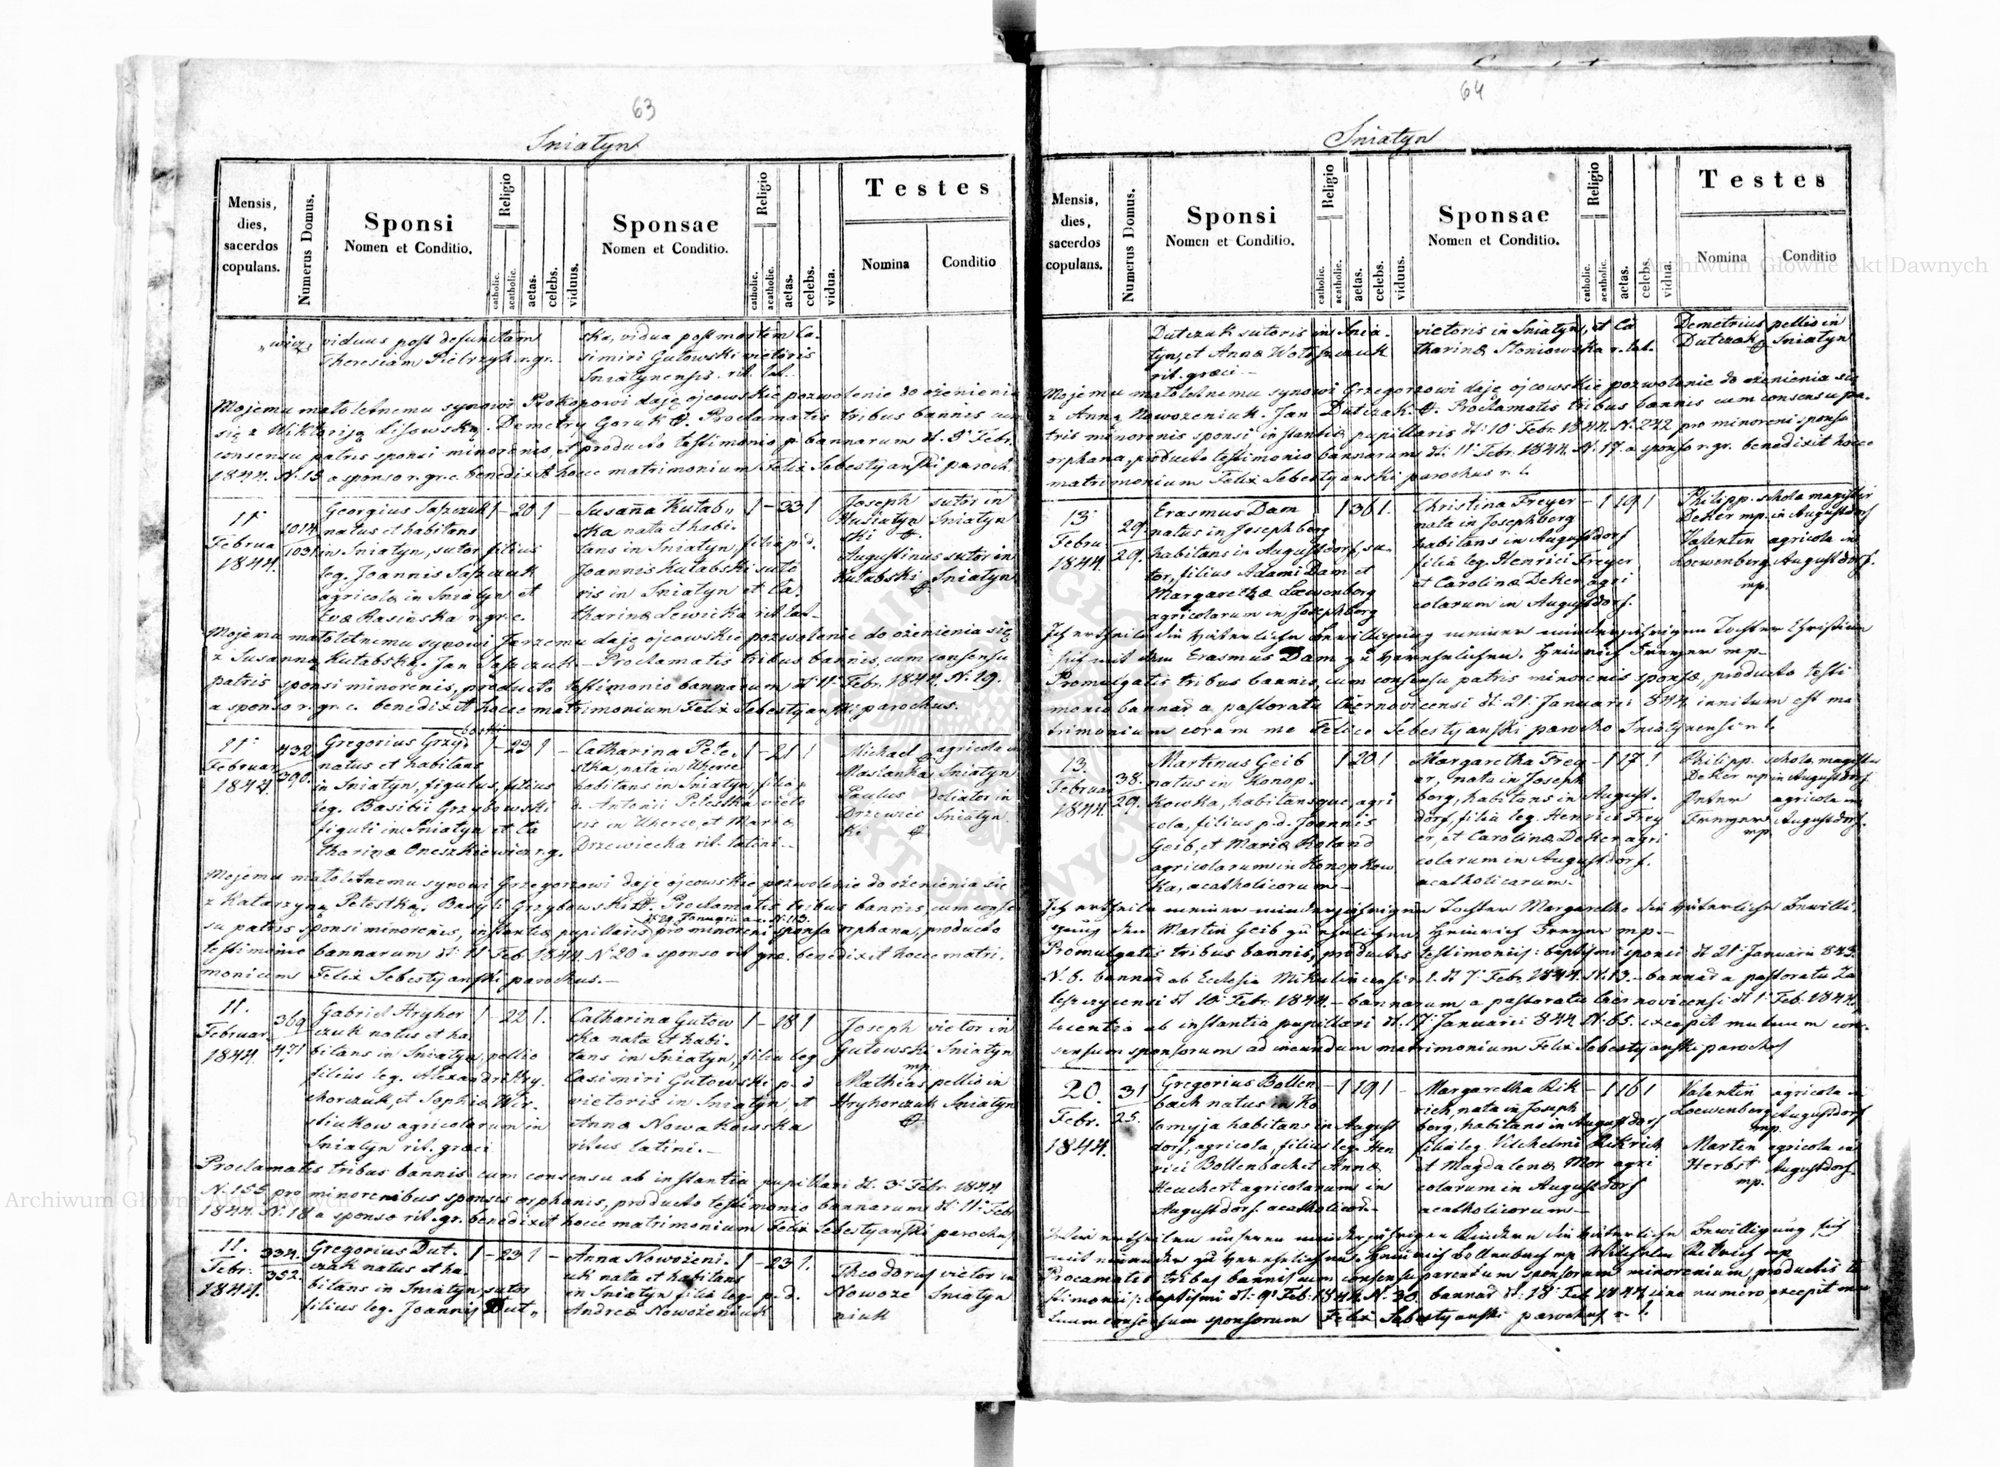 63
Sniatyn
Mensis, dies, sacerdos copulans.
Numerus Domus.
Sponsi
Nomen et Conditio.
Religio
catholic.
acatholic.
aetas.
celebs.
viduus.
Sponsae
Nomen et Conditio.
Religio
catholic.
acatholic.
aetas.
celebs.
vidua.
Testes
Nomina
Conditio
viduus post defunctam
Theresiam Pietrzyk r. gr.
ska, vidua post mortem Ca-
simiri Gutowski victoris
Sniatynensis rit. lat.
Mojemu małoletnemu synowi Prokopowi daję ojcowskie pozwolenie do ożenienia
się z Wiktoryą Lisowską. Demetry Goruk Proclamatis tribus bannis cum
consensu patris sponsi minorenis, producto testimonio bannarum d. 9 Febr.
1844. N. 15 a sponso r. gr. c. benedixit hocce matrimonium Felix Sebestyanski paroch.
11
Februa
1844.
1014
1031
Georgius Sapczuk
natus et habitans
in Sniatyn, sutor, filius
leg. Joannis Sapczuk
agricola in Sniatyn et
Eva Rasinska r. gr. c.
1 - 20 1 -
Susanna Kutab-
ska nata et habi-
tans in Sniatyn, filia p. d.
Joannis Kutabski suto
ris in Sniatyn et Ca-
tharina Lewicka rit. lat.
1 - 33 1
Joseph
Husiatyn
ski
sutor in
Sniatyn
Augustinus sutor in
Kutabski Sniatyn
Mojemu małoletnemu synowi Jerzemu daję ojcowskie pozwolenie do ożenienia się
z Susanną Kutabską. Jan Sapczuk. Proclamatis tribus bannis, cum consensu
patris sponsi minorenis, producto testimonio bannarum d. 11 Febr. 1844. N. 19.
a sponso r. gr. c. benedixit hocce matrimonium Felix Sebestyanski parochus.
11
Februar
1844
432
390.
Gregorius Grzy-
natus et habitans
in Sniatyn, figulus, filius
leg. Basilii Grzybowski
figuli in Sniatyn et Ca
tharina Oneszkiewicz r. g.
1 - 23 1 -
Catharina Pete-
ska, nata in Uherce
habitans in Sniatyn, filia
Antonii Peteska victo
ris in Uherce, et Maria
Drzewiecka rit. latini.
1 - 21 1
Michael agricola in
Maslanka Sniatyn
Paulus doliator in
Drzewiec Sniatyn
ki
Mojemu małoletnemu synowi Grzegorzowi daję ojcowskie pozwolenie do ożenienia się
z Katarzyną Peteską. Basyli Grzybowski. Proclamatis tribus bannis, cum conse
su patris sponsi minorenis, instantia pupillaris pro minoreni sponsa orphana, producto
testimonio bannarum d. 11 Feb. 1844 N. 20 a sponso rit. gr. c. benedixit hocce matri-
monium Felix Sebestyanski parochus.
11.
Februar
1844.
369
471
Gabriel Hryhor
czuk natus et ha
bitans in Sniatyn, pellio
filius leg. Alexandri Hry-
horczuk, et Sophia Wis-
stiukow agricolarum in
Sniatyn rit. graeci
1 - 22 1. -
Catharina Gutow
ska nata et habi-
tans in Sniatyn, filia leg
Casimiri Gutowski p. d
victoris in Sniatyn, et
Anna Nowakowska
ritus latini.
1 - 18 1
Joseph victor in
Gutowski Sniatyn
mp.
Mathias pellio in
Hryhorczuk Sniatyn
Proclamatis tribus bannis cum consensu ab instantia pupillari d. 3 Febr. 1844
N. 155 pro minorenibus sponsis orphanis, producto testimonio bannarum d. 11 Febr
1844. N. 18 a sponso rit. gr. benedixit hocce matrimonium Felix Sebestyanski parochus
11.
Febr.
1844.
334.
352.
Gregorius Dut-
czuk natus et ha
bitans in Sniatyn, sutor
filius leg. Joannis Dut-
1 - 23 1 -
Anna Nowożeni-
uk nata et habitans
in Sniatyn filia leg. p. d.
Andrea Nowożeniuk
1 - 23 1.
Theodorus victor in
Nowoże Sniatyn
niuk
64
Sniatyn
Mensis, dies, sacerdos copulans.
Numerus Domus.
Sponsi
Nomen et Conditio.
Religio
catholic.
acatholic.
aetas.
celebs.
viduus.
Sponsae
Nomen et Conditio.
Religio
catholic.
acatholic.
aetas.
celebs.
vidua.
Testes
Nomina
Conditio
Dutczuk sutoris in Snia-
tyn, et Anna Woloszczuk
rit. graeci
victoris in Sniatyn, et Ca
tharina Stoniowska r. lat.
Demetrius pellio in
Dutczak Sniatyn
Mojemu małoletnemu synowi Grzegorzowi daję ojcowskie pozwolenie do ożenienia się
z Anną Nowożeniuk. Jan Dutczak. Proclamatis tribus bannis cum consensu pa-
tris minorenis sponsi, instantia pupillaris d. 10 Febr. 1844. N. 242 pro minoreni sponsa
orphana, producto testimonio bannarum d. 11 Febr. 1844. N. 17. a sponso r. gr. benedixit hocce
matrimonium Felix Sebestyanski parochus r. l.
13
Febru
1844
29.
29.
Erasmus Dam
natus in Josephberg
habitans in Augustdorf, su-
tor, filius Adami Dam et
Margaretha Loewenberg
agricolarum in Josephberg
- 1 36 1. -
Christina Freyer
nata in Josephberg
habitans in Augustdorf
filia leg. Henrici Freyer
et Carolina Deker agri
colarum in Augustdorf.
- 1 19 1
Philipp schola magister
Deker mp. in Augustdorf
Valentin agricola in
Loewenberg Augustdorf.
mp.
Ich ertheile die väterliche Bewilligung meiner minderjährigen Tochter Christina
sich mit dem Erasmus Dam zu verehelichen. Heinrich Freyer mp.
Promulgatis tribus bannis, cum consensu patris minorenis sponsa, producto testi
monio bannar. a pastoratu Czernovicensi d. 21 Januarii 844. innitum est ma
trimonium coram me Felice Sebestyanski parocho Sniatynensi r. l.
13.
Februar
1844.
38.
29.
Martinus Geib
natus in Konop-
kowka, habitansque, agri
cola, filius p. d. Joannis
Geib, et Maria Boland
agricolarum in Konopkow
ka, acatholicorum
- 1 20 1 -
Margaretha Frey
er, nata in Joseph
berg, habitans in August-
dorf, filia leg. Henrici Frey
er, et Carolina Deker agri
colarum in Augustdorf.
acatholicorum.
- 1 17 1
Philipp schola magister
Deker mp in Augustdorf
Peter agricola in
Freyer Augustdorf.
mp.
Ich ertheile meiner minderjährigen Tochter Margaretha die väterliche Bewilli-
gung den Martin Geib zu ehelichen, Heinrich Freyer mp.
Promulgatis tribus bannis, productis testimoniis: baptismi sponsi d. 21 Januarii 843.
N. 8. bannar. ab Ecclesia Mikulincensi r. l. d. 7 Febr. 1844. N. 13. bannar. a pastoratu Za
leszczycensi d. 10 Febr. 1844. bannarum a pastoratu Czernovicensi d. 1 Feb. 1844
licentia ab instantia pupillari d. 17 Januarii 844 N. 65. excepit mutuum con-
sensum sponsorum ad ineundum matrimonium Felix Sebestyanski parochus
20.
Febr.
1844.
31
25.
Gregorius Bollen
bach natus in Ko
lomyja habitans in August
dorf, agricola, filius leg. Hen
rici Bollenbach et Anna
Heuchert agricolarum in
Augustdorf. acatholicor.
- 1 19 1 -
Margaretha Rik
rich, nata in Joseph
berg, habitans in Augustdorf
filia leg. Vilhelmi Rikrich
et Magdalena Mor agri
colarum in Augustdorf
acatholicorum
- 1 16 1
Valentin agricola in
Loewenberg Augustdorf
mp.
Martin agricola in
Herbst Augustdorf.
mp.
Wir ertheilen unseren minderjährigen Kindern die väterliche Bewilligung sich
mit einander zu verehelichen. Heinrich Bollenbach mp Wilhelm Rikrich mp
Procamatis tribus bannis cum consensu parentum sponsorum minorenium, productis te
stimoniis baptismi d. 9 Feb. 1844. N. 30. bannar. d. 18 Feb. 1844 sine numero, excepit mu
tuum consensum sponsorum Felix Sebestyanski parochus r. l.
Archiwum Główne Akt Dawnych
Archiwum Główne Akt Dawnych
ARCHIWUM GŁÓWNE AKT DAWNYCH